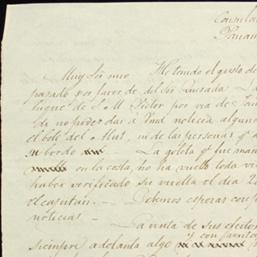 Consula
Panam
Muy Sor mio He tenido el gusto d
pasado por favor de del Sor Quesada
buque de S. M. Victor por via de
de no poder dar a Vmd noticia alguno
el bote del ni de las personas q̃
su bordo La goleta q̃ he man
en la costa, no ha vuelto toda vi
haber verificado su vuelta el dia 2
el capitan. Debemos esperar con
noticias
La venta de sus efectos
siempre adelanta algo y con